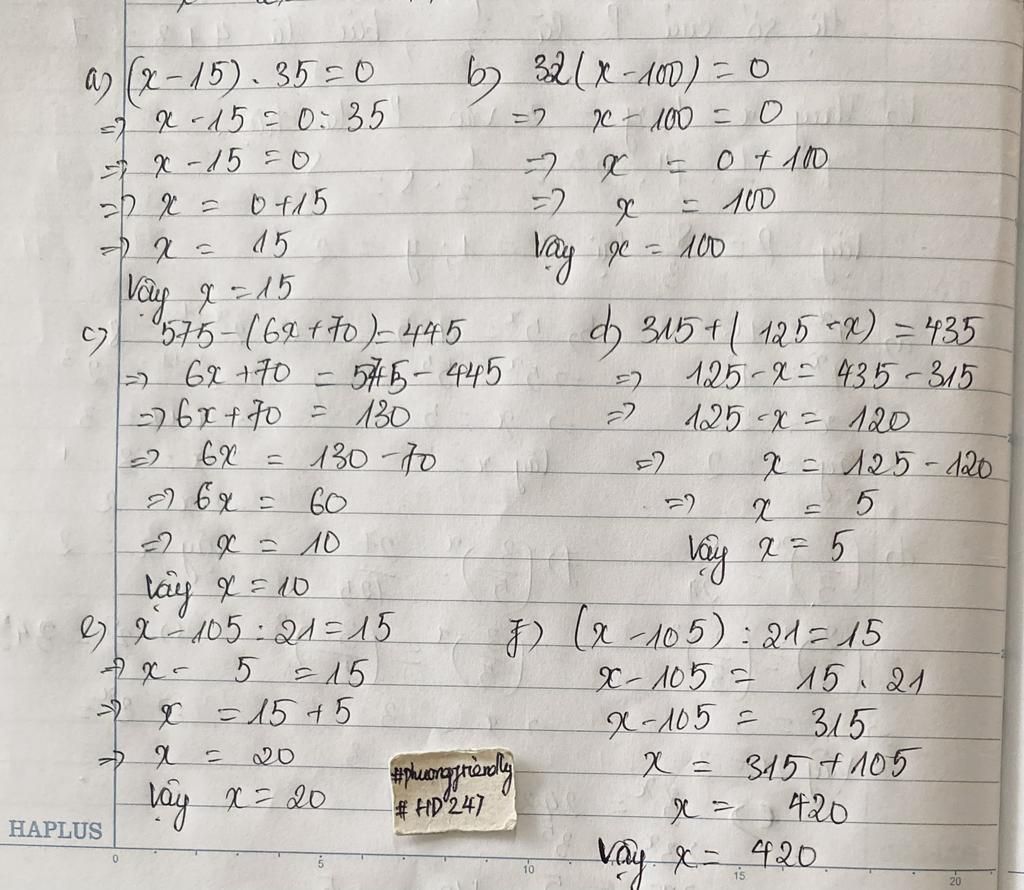 a) (x-15).35=0
=> x-15=0:35
=> x-15=0
=> x = 0+15
=> x = 15
Vậy x=15
b) 32(x-100)=0
=> x-100=0
=> x = 0+100
=> x = 100
Vậy x=100
c) 575-(6x+70)=445
=> 6x+70 = 575-445
=> 6x+70 = 130
=> 6x = 130-70
=> 6x = 60
=> x = 10
Vậy x=10
d) 315+(125-x)=435
=> 125-x=435-315
=> 125-x=120
=> x=125-120
=> x = 5
Vậy x=5
e) x-105:21=15
=> x- 5 =15
=> x =15+5
=> x = 20
Vậy x=20
f) (x-105):21=15
x-105= 15.21
x-105= 315
x = 315+105
x = 420
Vậy x= 420
#phuongfriendly
#HD247
HAPLUS
0 5 10 15 20